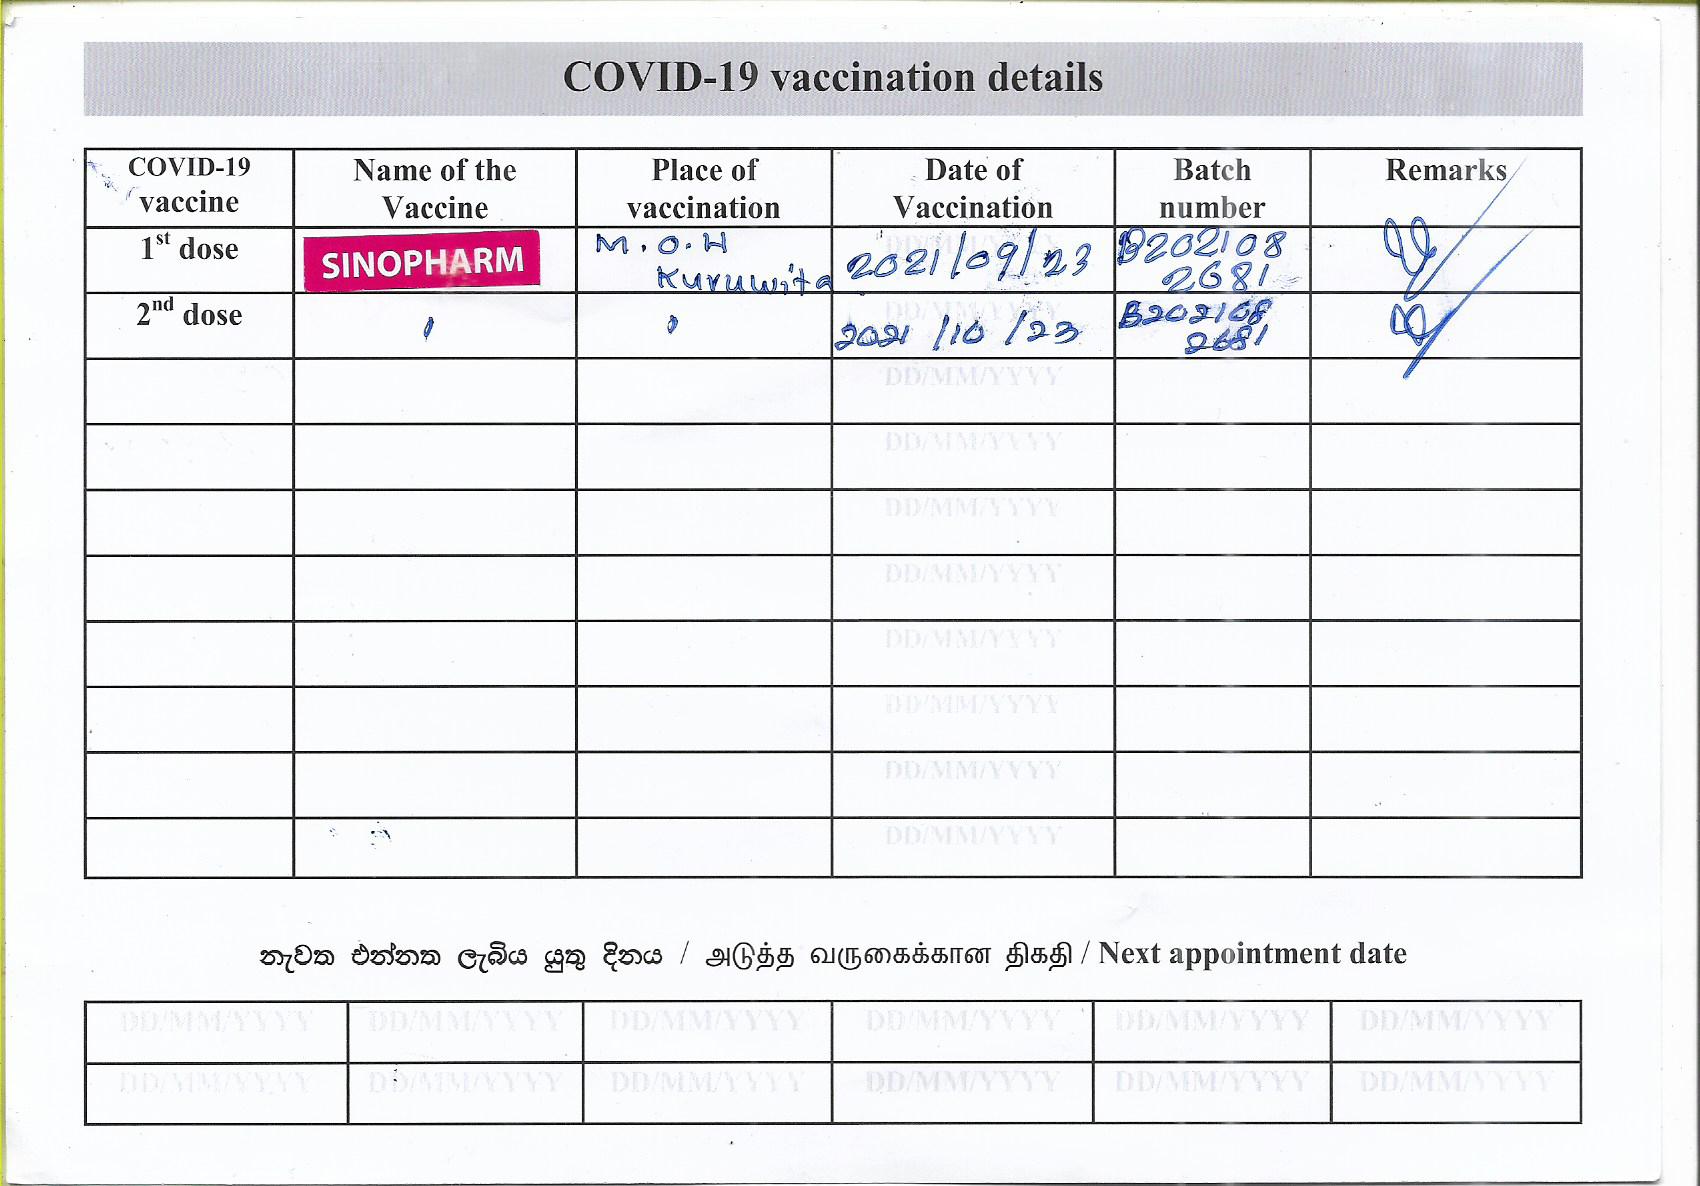 COVID-19 vaccination details
COVID-19 vaccine
Name of the Vaccine
Place of vaccination
Date of Vaccination
Batch number
Remarks
1st dose
SINOPHARM
M.O.H Kuruwita
2021/09/23
B202108 2681
2nd dose
"
"
2021/10/23
B202108 2681
DD/MM/YYYY
DD/MM/YYYY
DD/MM/YYYY
DD/MM/YYYY
DD/MM/YYYY
DD/MM/YYYY
DD/MM/YYYY
DD/MM/YYYY
නැවත එන්නත ලැබිය යුතු දිනය / அடுத்த வருகைக்கான திகதி / Next appointment date
DD/MM/YYYY DD/MM/YYYY DD/MM/YYYY DD/MM/YYYY DD/MM/YYYY DD/MM/YYYY
DD/MM/YYYY DD/MM/YYYY DD/MM/YYYY DD/MM/YYYY DD/MM/YYYY DD/MM/YYYY